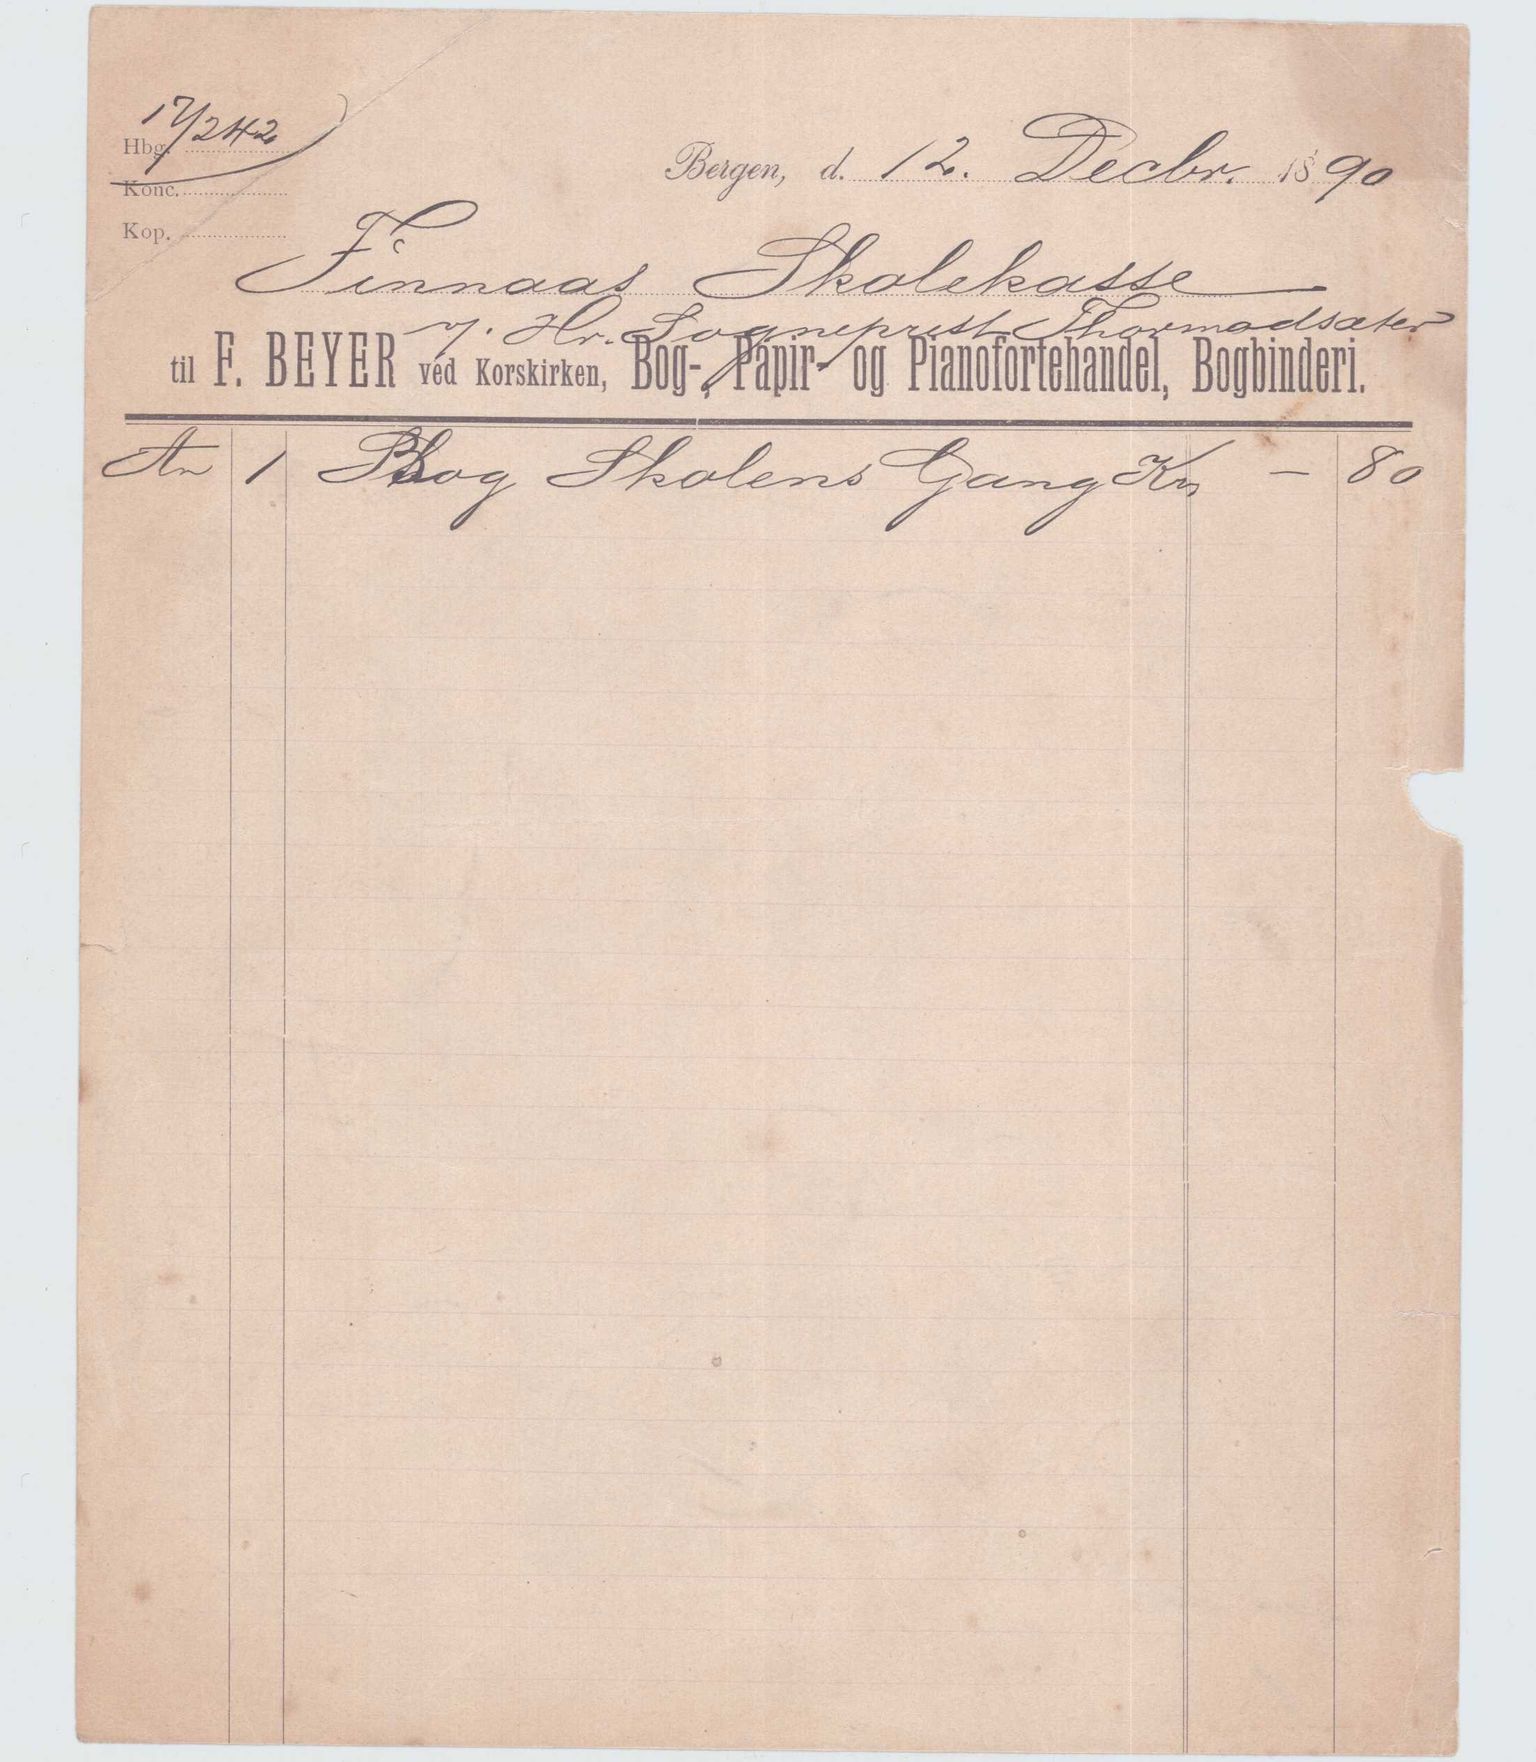 Hbg. 17/242
Bergen, d. 12. Decbr. 1890
Konc.
Kop.
Finnaas Skolekasse
v/. Hr. Sogneprest Thormodsæter
til F. BEYER ved Korskirken, Bog-, Papir- og Pianofortehandel, Bogbinderi.
An 1 Bog Skolens Gang Kr – 80